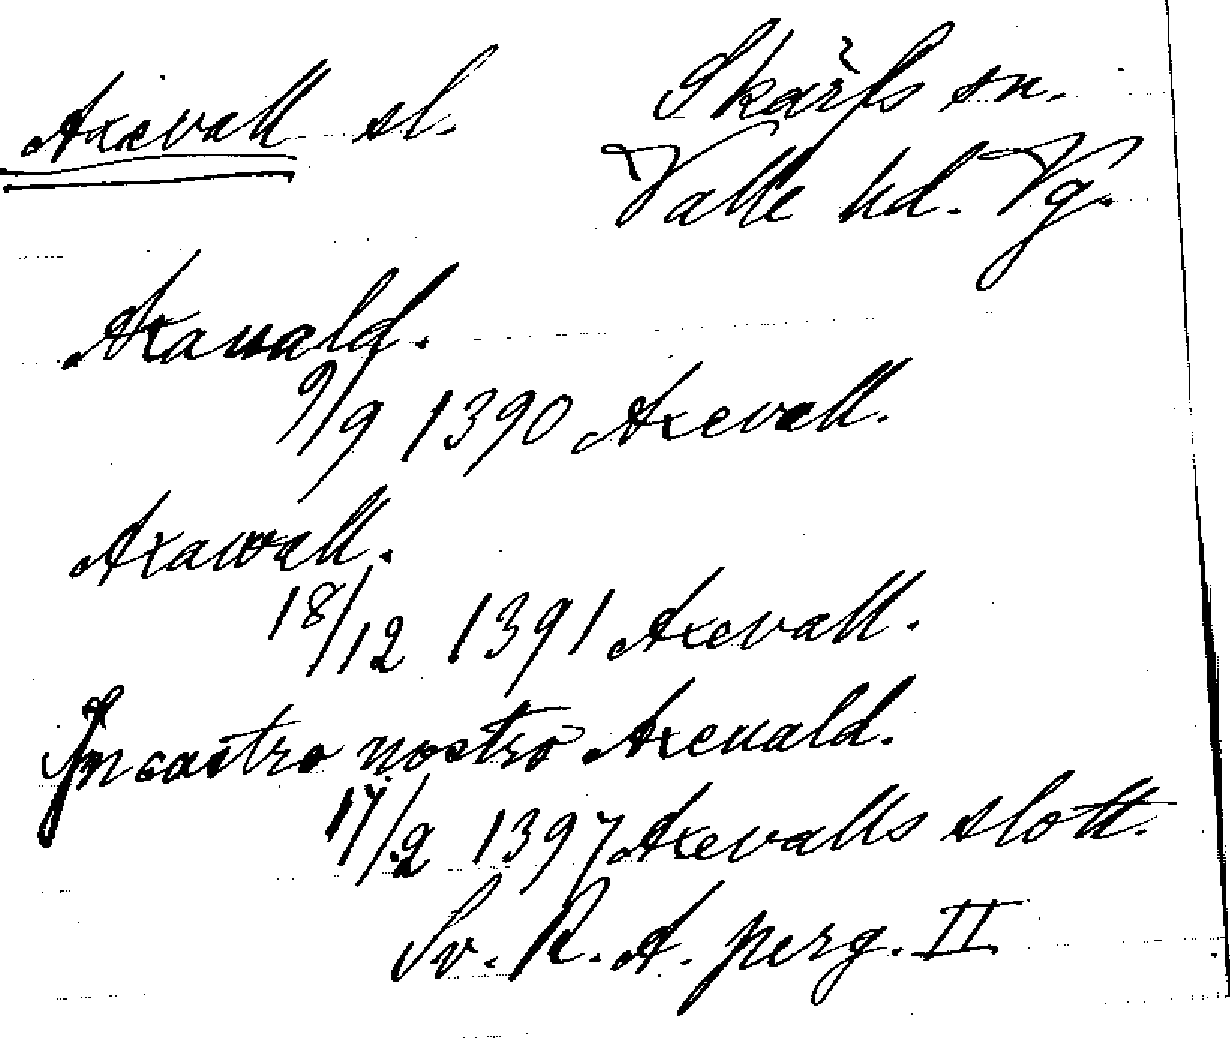 Axevall sl. Skärfs sn.
Valle hd. Vg.
Axawald.
9/9 1390 Axevall.
Axawall.
18/12 1391 Axevall.
In castro nostro Axewald.
17/2 1397 Axevalls slott.
Sv. R. A. perg. II